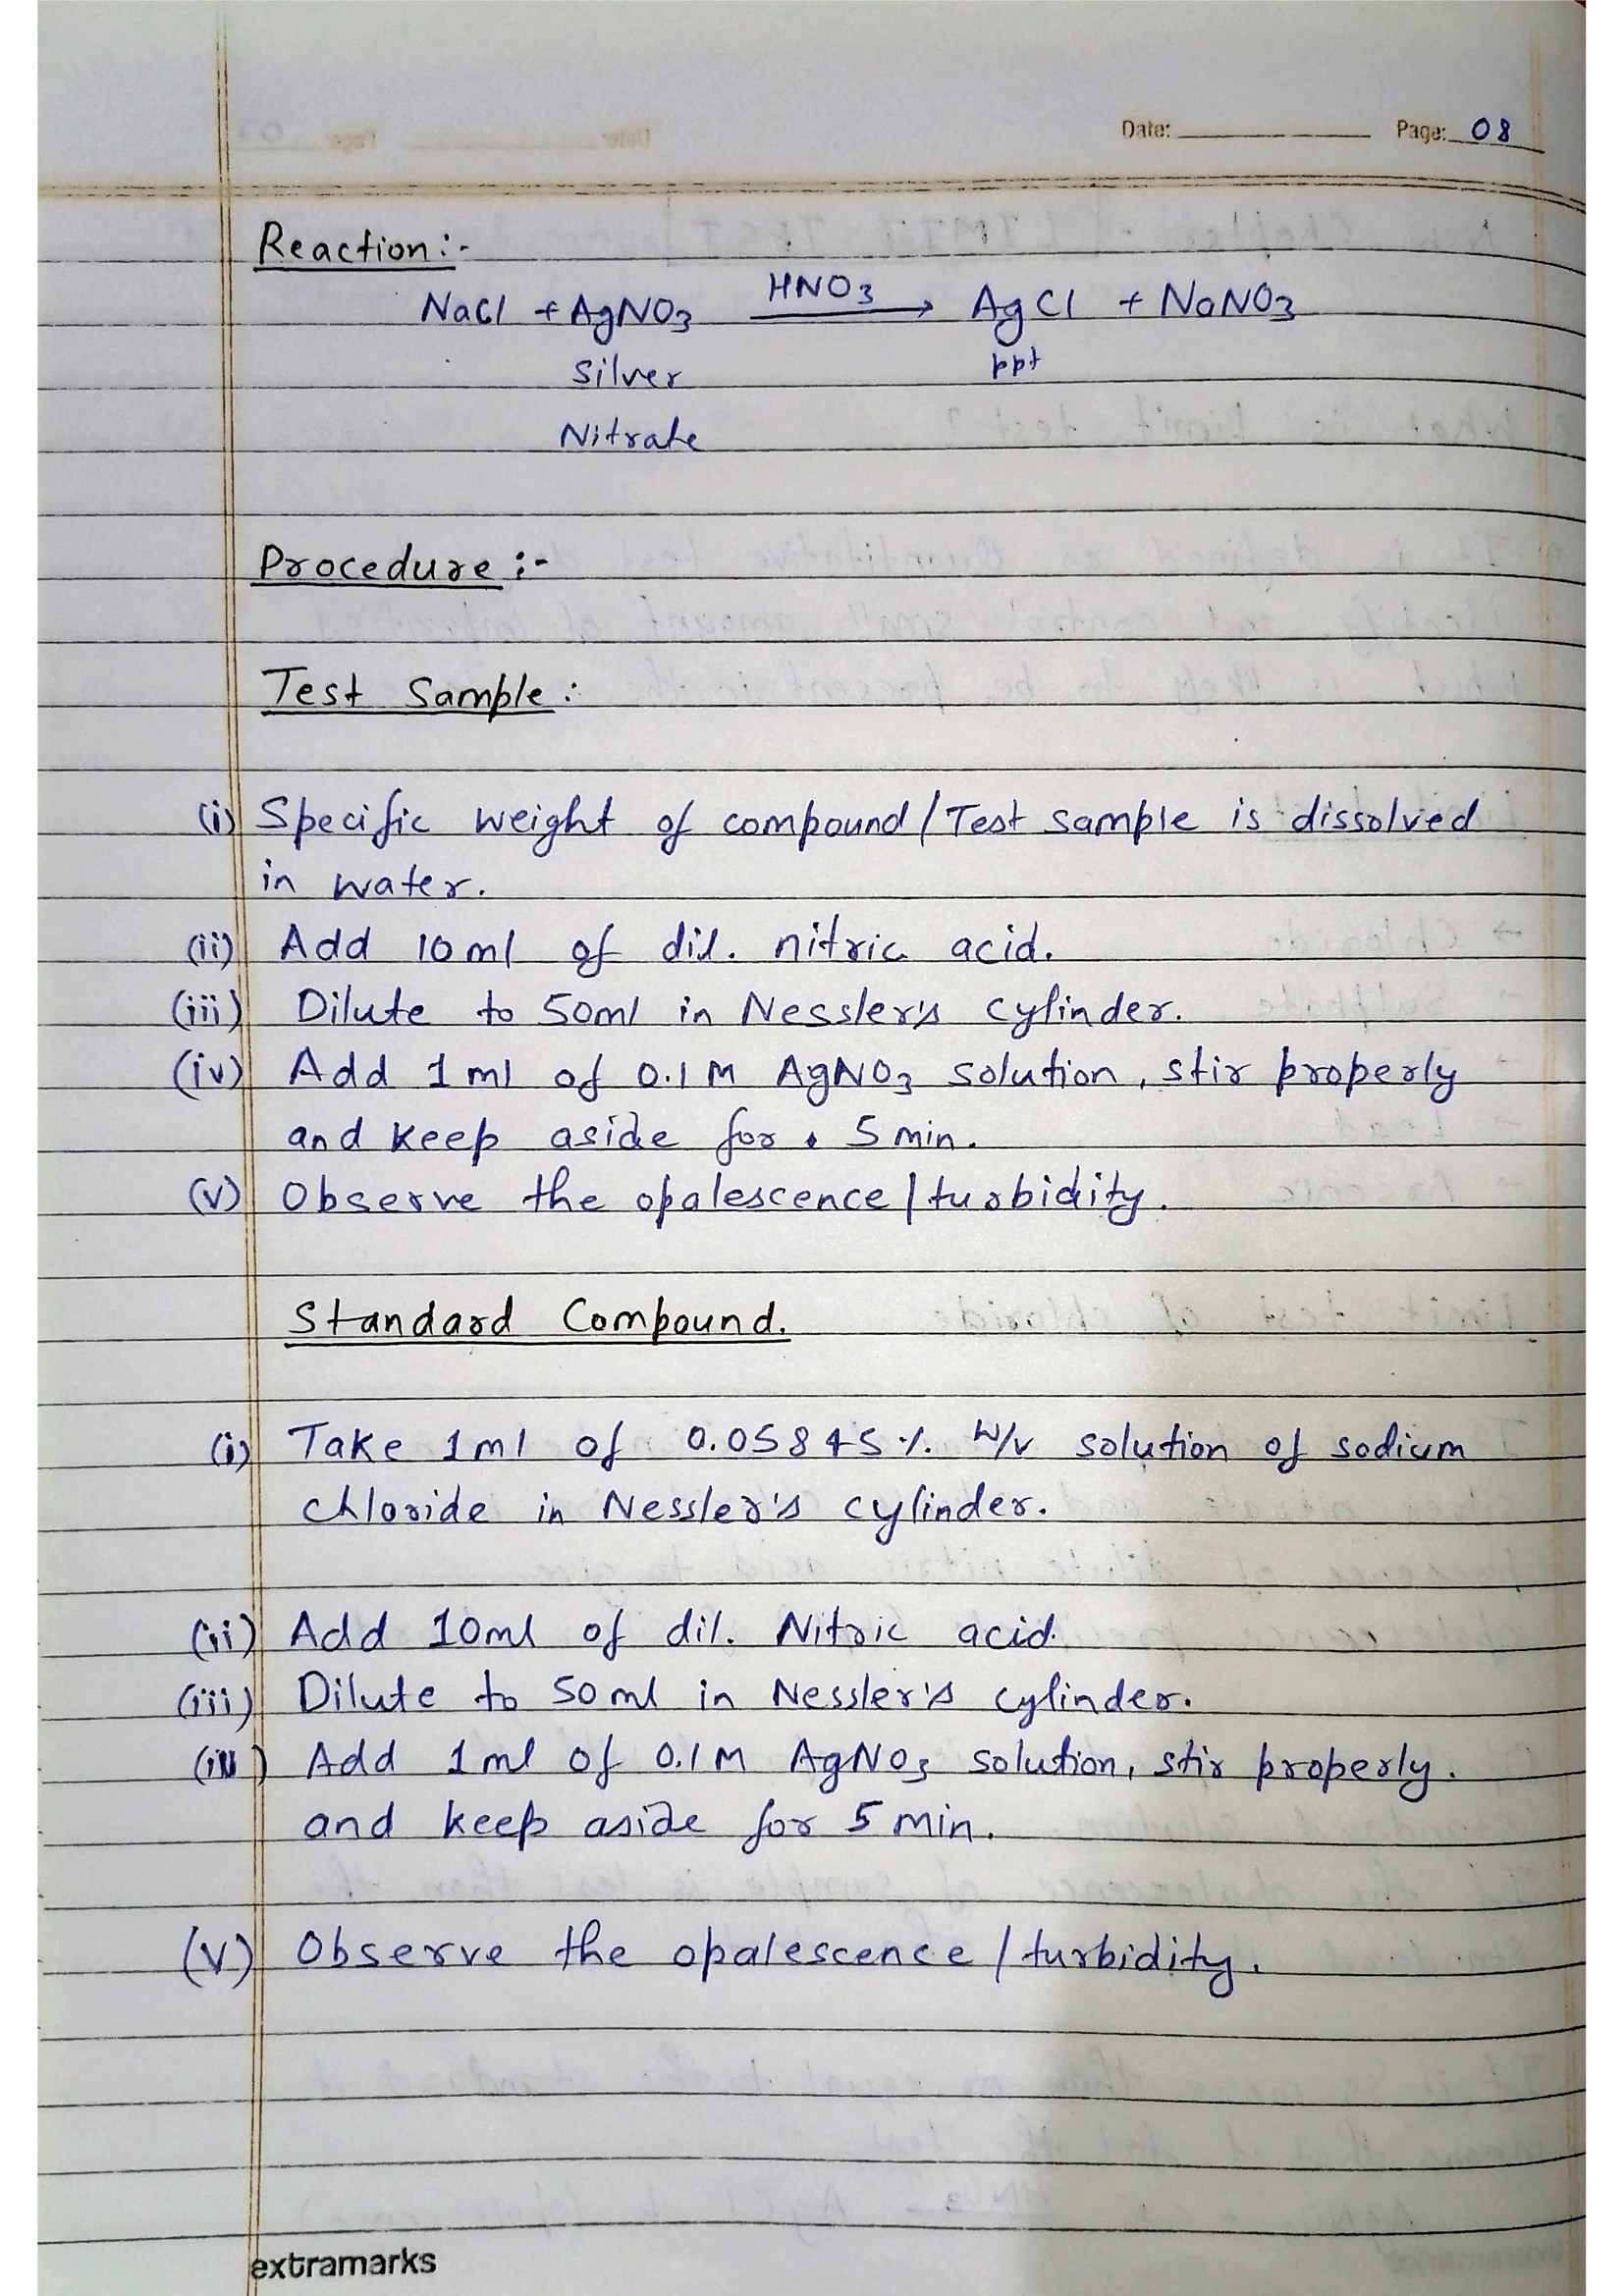 Date: Page: 08
Reaction:-
NaCl + AgNO3 HNO3 → AgCl + NaNO3
Silver ppt
Nitrate
Procedure :-
Test Sample :
(i) Specific weight of compound / Test sample is dissolved
in water.
(ii) Add 10 ml of dil. nitric acid.
(iii) Dilute to 50ml in Nessler's cylinder.
(iv) Add 1 ml of 0.1 M AgNO3 solution, stir properly
and keep aside for 5 min.
(v) Observe the opalescence / turbidity.
Standard Compound.
(i) Take 1 ml of 0.05845 % W/v solution of sodium
chloride in Nessler's cylinder.
(ii) Add 10ml of dil. Nitric acid.
(iii) Dilute to 50 ml in Nessler's cylinder.
(iv) Add 1 ml of 0.1 M AgNO3 solution, stir properly.
and keep aside for 5 min.
(v) Observe the opalescence / turbidity.
extramarks